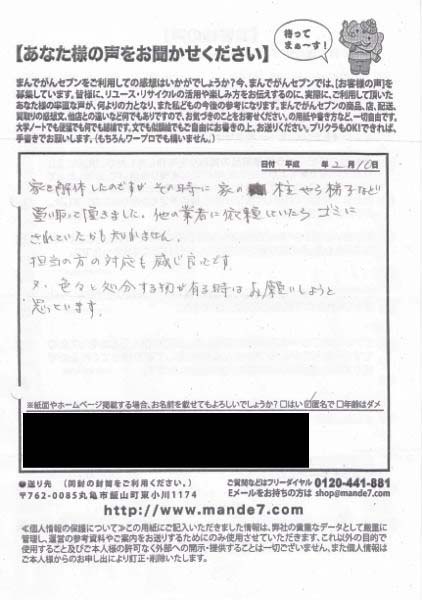 待ってまぁ〜す!
【あなた様の声をお聞かせください】
まんでがんセブンをご利用しての感想はいかがでしょうか?今、まんでがんセブンでは、【お客様の声】を
募集しています。皆様に、リユース・リサイクルの活用や楽しみ方をお伝えするのに、実際に、ご利用して頂いた
あなた様の率直な声が、何よりの力となり、また私どもの今後の参考になります。まんでがんセブンの商品、店、配送、
買取りの感想文、他店との違いなど何でもありですので、お気づきのことをお寄せください。の用紙や書き方など、一切自由です。
大学ノートでも便箋でも何でも結構です。文でも似顔絵でもご自由にお書きの上、お送りください。プリクラもOK!できれば、
手書きでお願いします。(もちろんワープロでも構いません。)
日付 平成 年 2 月 16 日
家を解体したのですが その時に 家の 柱やら梯子など
買い取って頂きました。他の業者に依頼していたら ゴミに
されていたかも知れません。
担当の方の対応も感じ良いです。
又、色々と処分する物が有る時はお願いしようと
思っています。
※紙面やホームページ掲載する場合、お名前を載せてもよろしいでしょうか?□はい ☑匿名で □年齢はダメ
●送り先 (同封の封筒をご利用ください。) ご質問などはフリーダイヤル 0120-441-881
〒762-0085丸亀市飯山町東小川1174 Eメールをお持ちの方は shop@mande7.com
http://www.mande7.com
≪個人情報の保護について≫この用紙にご記入いただきました情報は、弊社の貴重なデータとして厳重に
管理し、運営の参考資料やご案内をお送りするためにのみ使用させていただきます、これ以外の目的で
使用すること及びご本人様の許可なく外部への開示・提供することは一切ございません。また個人情報は
ご本人様からのお申し出により訂正・削除いたします。